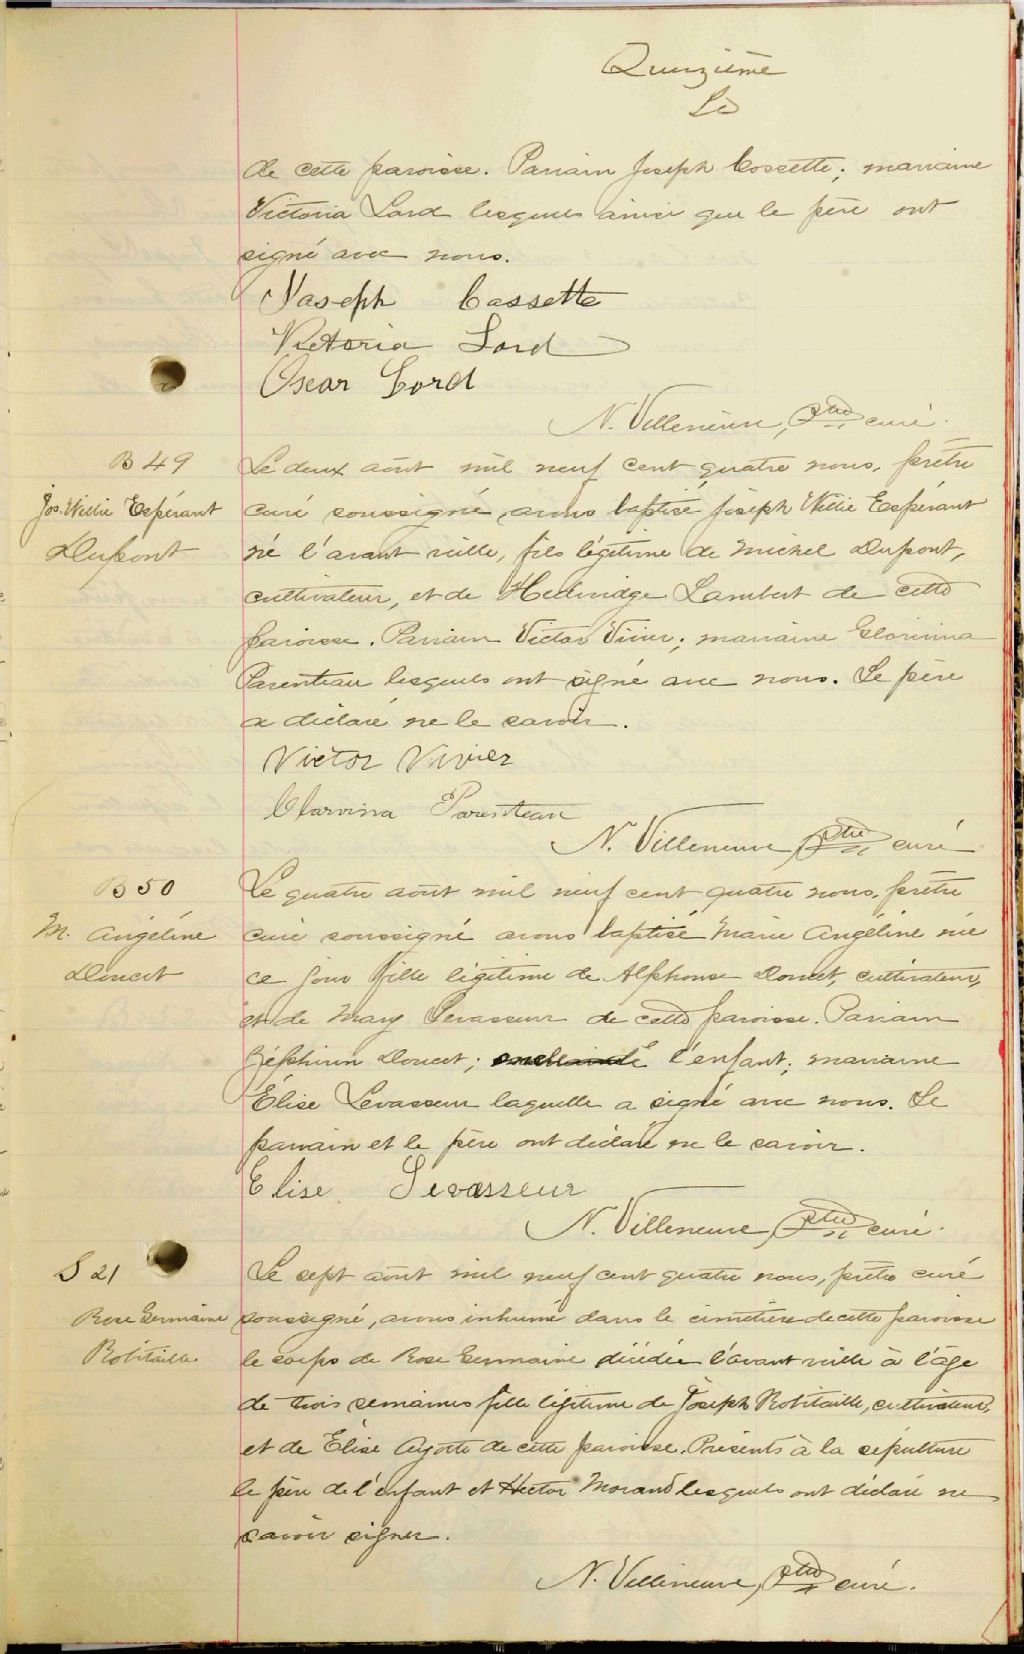 Quinzième
de cette paroisse. Parrain Joseph Cossette; marraine
Victoria Lord lesquels ainsi que le père ont
signé avec nous.
Joseph Cossette
Victoria Lord
Oscar Lord
N. Villeneuve, ptre curé.
B 49
Jos. Willie Espérant
Dupont
Le deux août mil neuf cent quatre nous, prêtre
curé soussigné avons baptisé Joseph Willie Espérant
né l'avant veille, fils légitime de Michel Dupont,
cultivateur, et de Hedwidge Lambert de cette
paroisse. Parrain Victor Vivier; marraine Clorinina
Parenteau lesquels ont signé avec nous. Le père
a déclaré ne le savoir.
Victor Vivier
Clarvina Parenteau
N. Villeneuve, ptre curé
B 50
M. Angéline
Doucet
Le quatre août mil neuf cent quatre nous, prêtre
curé soussigné avons baptisé Marie Angéline née
ce jour fille légitime de Alphonse Doucet, cultivateur,
et de Mary Levasseur de cette paroisse. Parrain
Zéphirin Doucet; l'enfant; marraine
Élise Levasseur laquelle a signé avec nous. Le
parrain et le père ont déclaré ne le savoir.
Elise Levasseur
N. Villeneuve, ptre curé.
S 21
Rose Germaine
Robitaille
Le sept août mil neuf cent quatre nous, prêtre curé
soussigné, avons inhumé dans le cimetière de cette paroisse
le corps de Rose Germaine décédée l'avant veille à l'âge
de trois semaines fille légitime de Joseph Robitaille, cultivateur,
et de Élise Ayotte de cette paroisse. Présents à la sépulture
le père de l'enfant et Hector Morand lesquels ont déclaré ne
savoir signer.
N. Villeneuve, ptre curé.